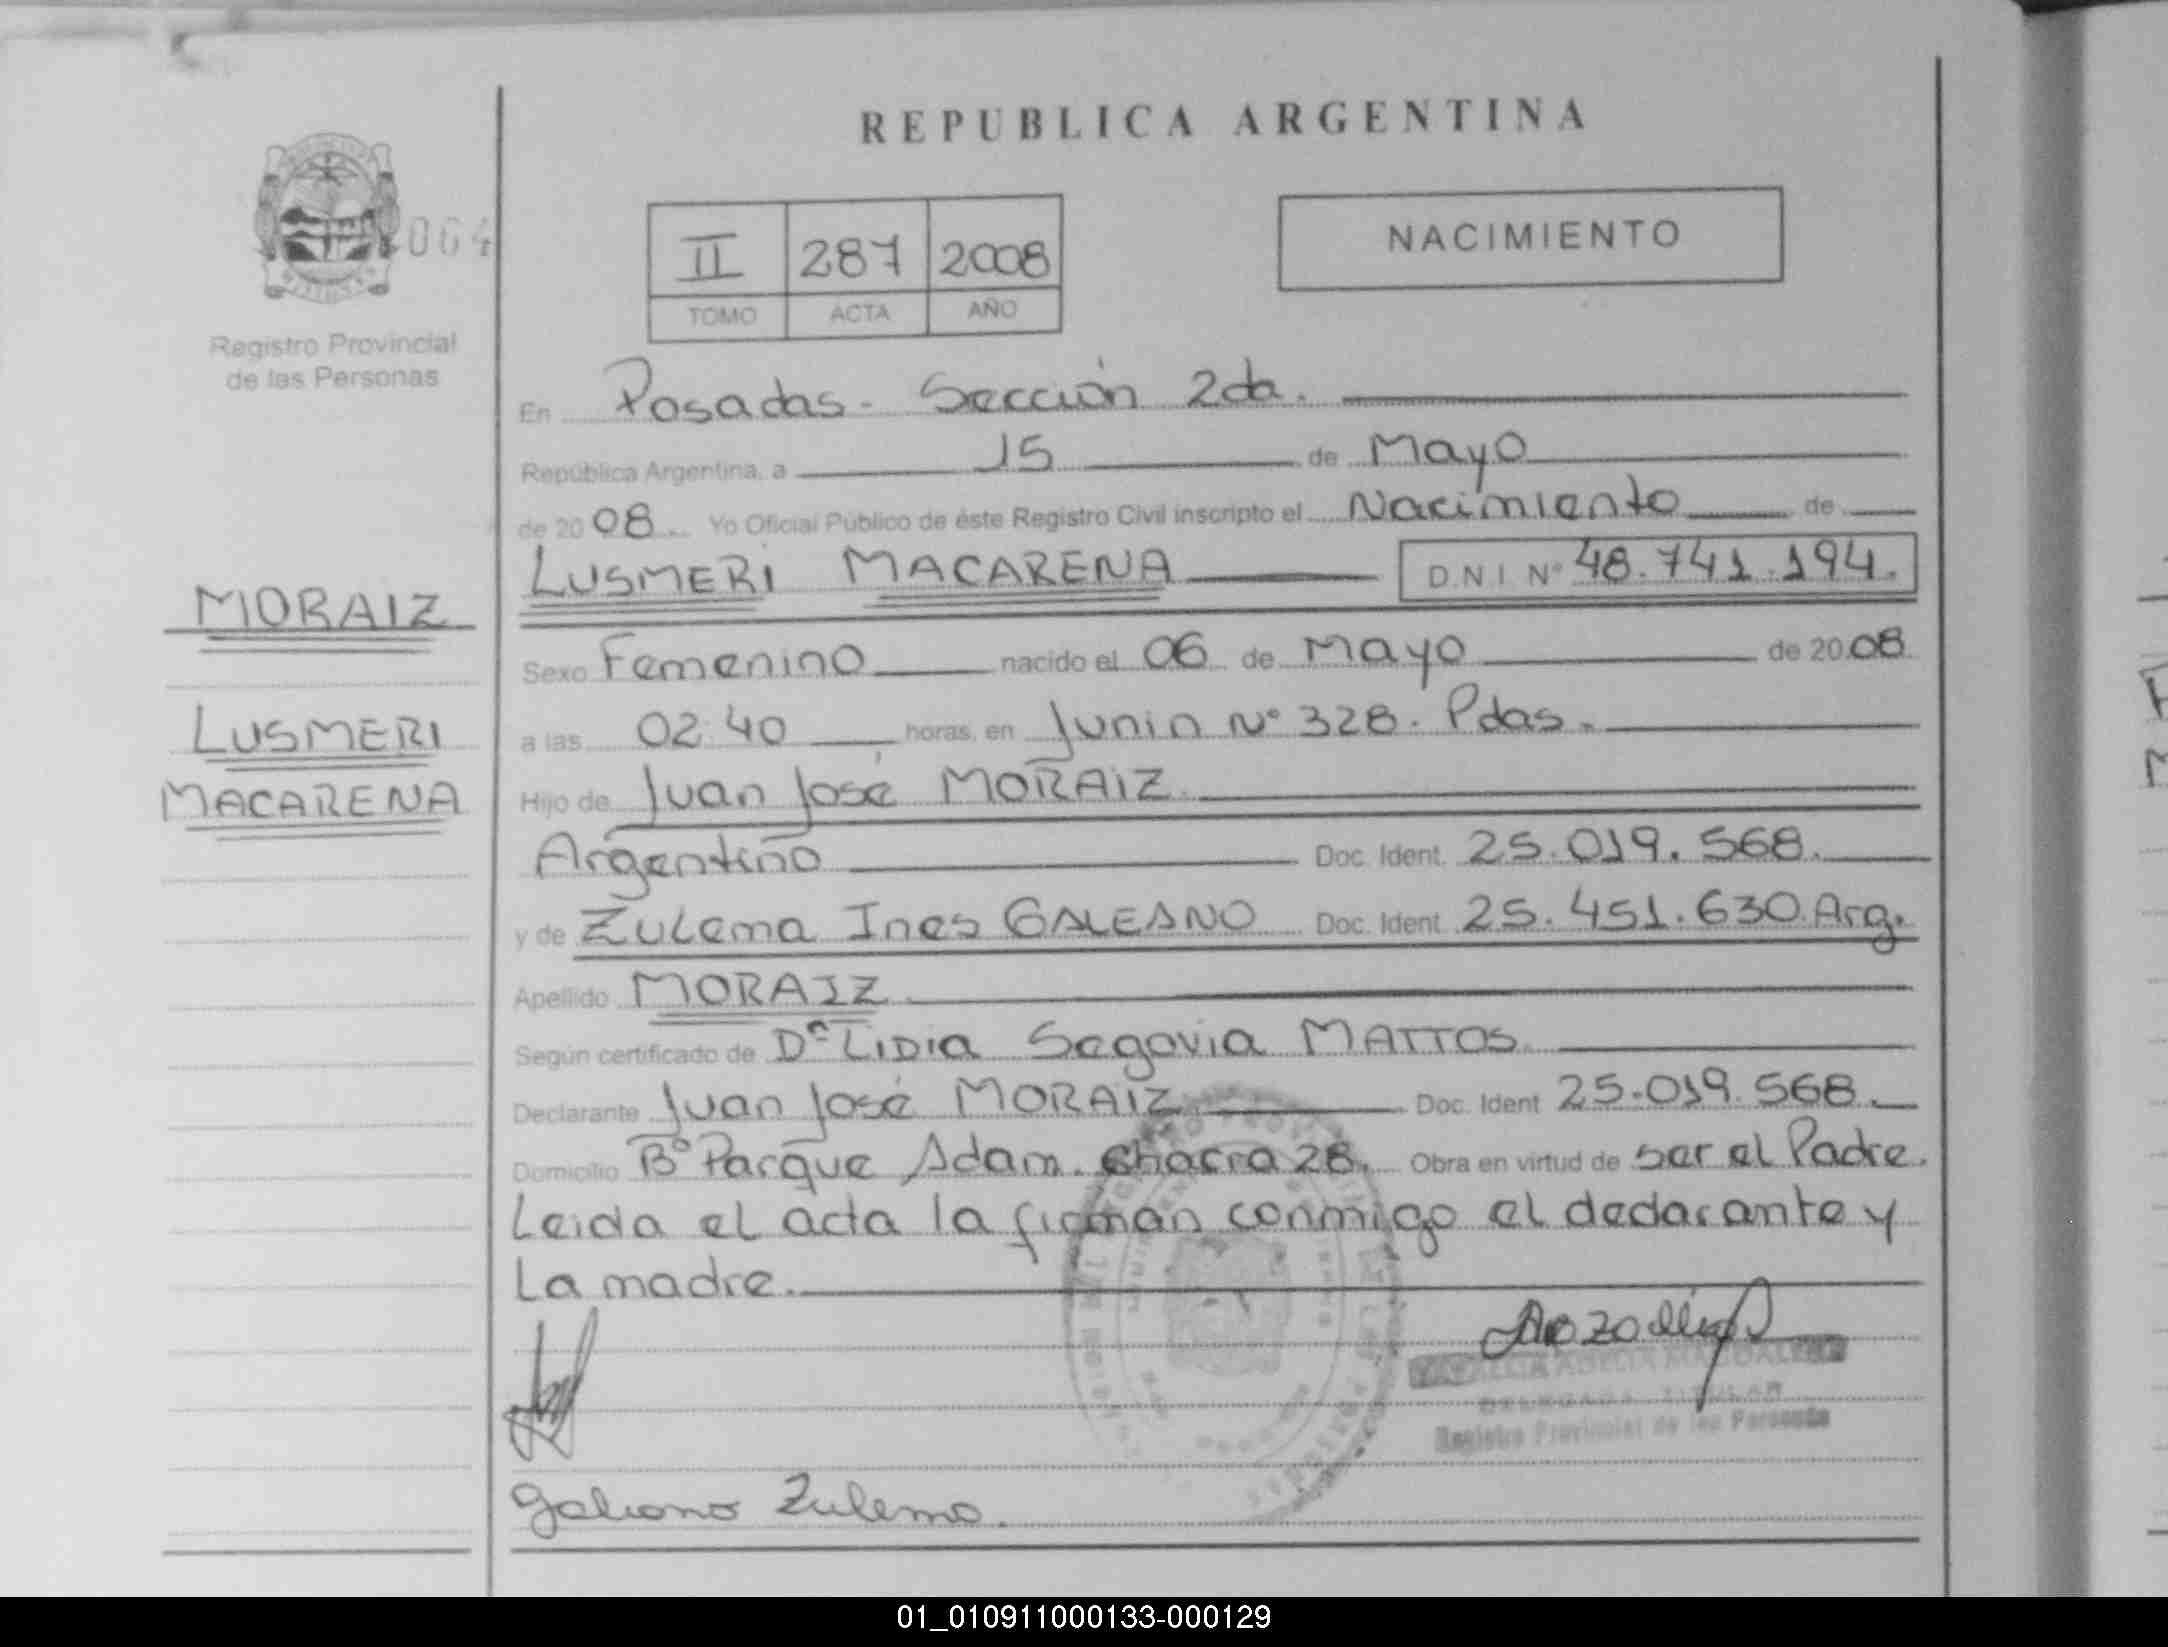 REPUBLICA ARGENTINA
II 287 2008
TOMO ACTA AÑO
NACIMIENTO
064
Registro Provincial
de las Personas
MORAIZ
LUSMERI
MACARENA
En Posadas - Sección 2da.
República Argentina, a 15 de Mayo
de 2008 Yo Oficial Público de éste Registro Civil inscripto el Nacimiento de
LUSMERI MACARENA D.N.I. Nº 48.741.194.
Sexo Femenino nacido el 06 de Mayo de 2008
a las 02:40 horas, en Junin Nº 328. Pdas.
Hijo de Juan José MORAIZ
Argentino Doc. Ident. 25.019.568.
y de Zulema Ines GALEANO Doc. Ident. 25.451.630. Arg.
Apellido MORAIZ
Según certificado de Dª Lidia Segovia MATTOS
Declarante Juan José MORAIZ Doc. Ident 25.019.568.
Domicilio Bº Parque Adam. Chacra 28. Obra en virtud de ser el Padre.
Leida el acta la firman conmigo el declarante y
La madre.
MAGDALENA
DELEGADA TITULAR
Registro Provincial de las Personas
Galeano Zulema.
01_010911000133-000129